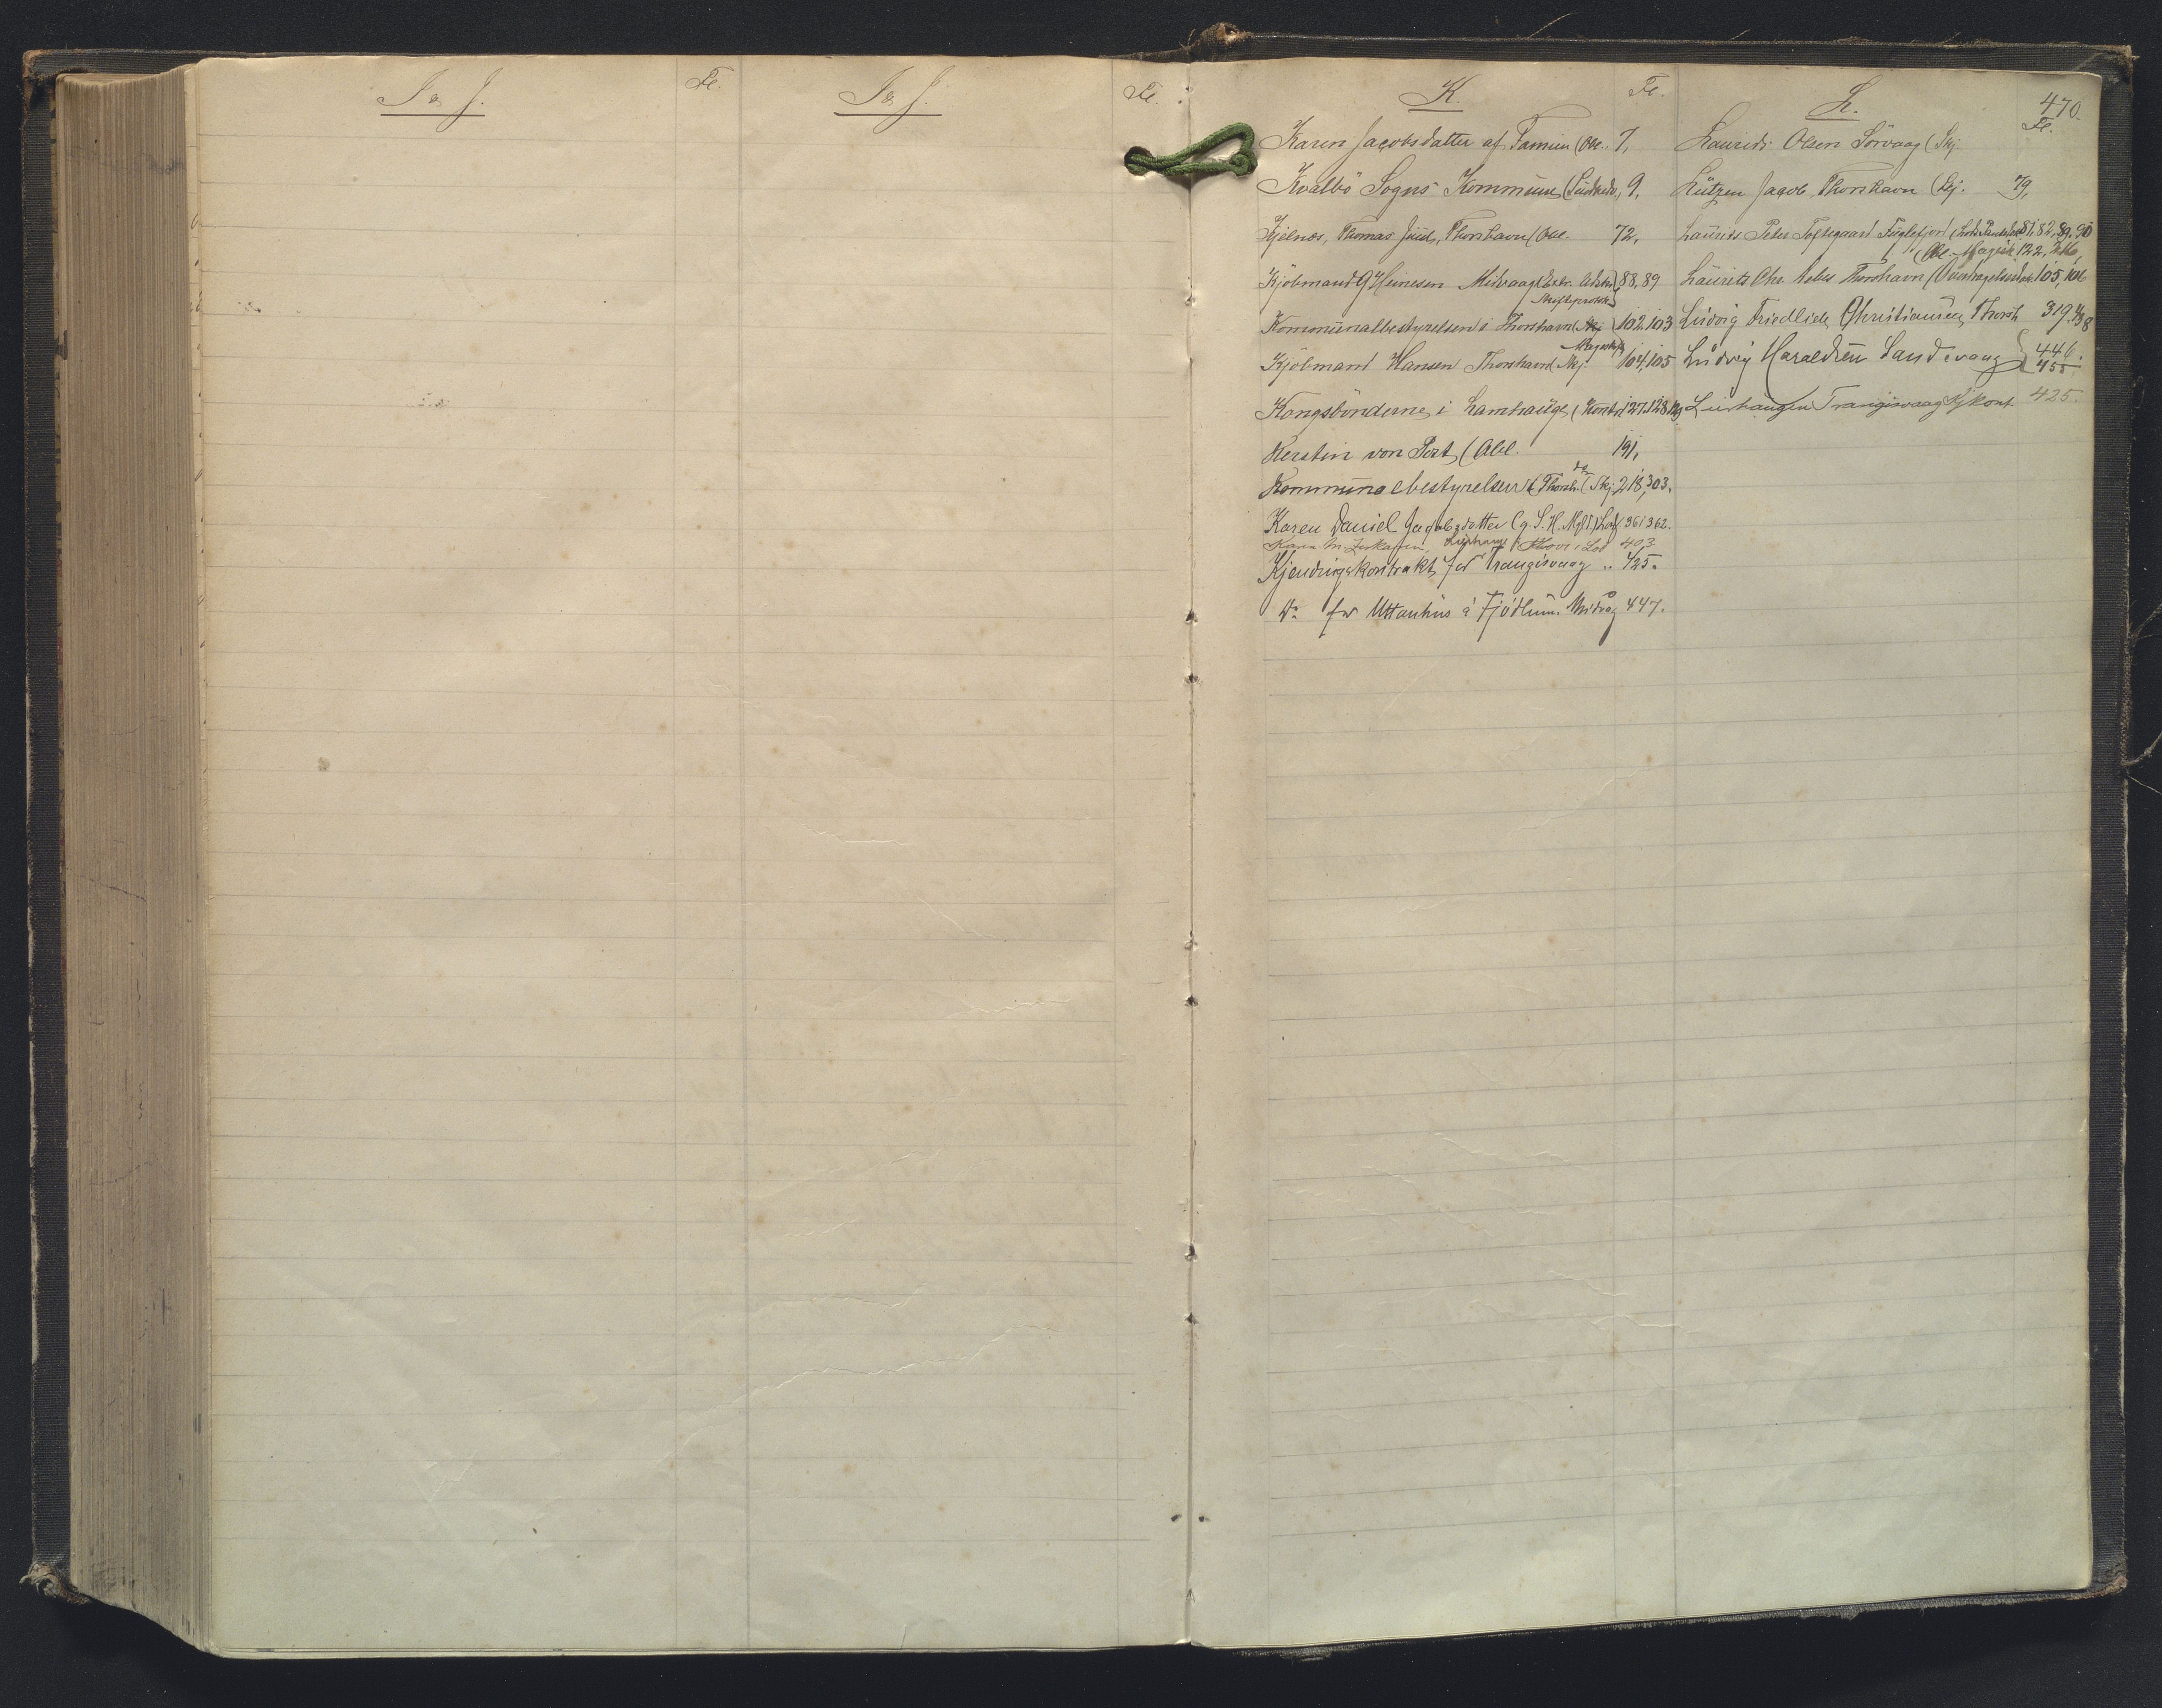 I & J.
Fl.
I & J.
Fl.
K.
Fl.
Karen Jacobsdatter af Famien (Obl. 7,
Kvalbö Sogns Kommune 9,
Kjelnæs, Thomas Juul, Thorshavn (Obl. 72,
Kjöbmand Heinesen Midvaag 88,89
Kommunalbestyrelsen i Thorshavn (Skj. 102.103
Kjöbmand Hansen Thorshavn Skj. 104,105
Kongsbönderne i Lambhauge 127.128.129
Kerstin von Port (Obl. 191,
Kommunalbestyrelsen i Thorsh. (Skj. 218,303.
Karen Daniel Jacobsdatter 361 362.
Karen M. 403.
Kjendingskontrakt for Trangisvaag .. 425.
Do for Uttanhús á Fjöllum. Midvaag 447.
L.
470.
Fl.
Laurids Olsen Sörvaag (Skj.
Lützen Jacob, Thorshavn (Lej. 79,
Laurids Peter Toftegaard Fuglefjord 81,82,89.90
(Obl. Magisk 122,
Laurits Chr. Thorshavn 105,106
Ludvig Friedlieb Christiansen, Thorsh 319.438
Ludvig Haraldsen Sandevaag 446.
455
Trangisvaag Kjkont. 425.